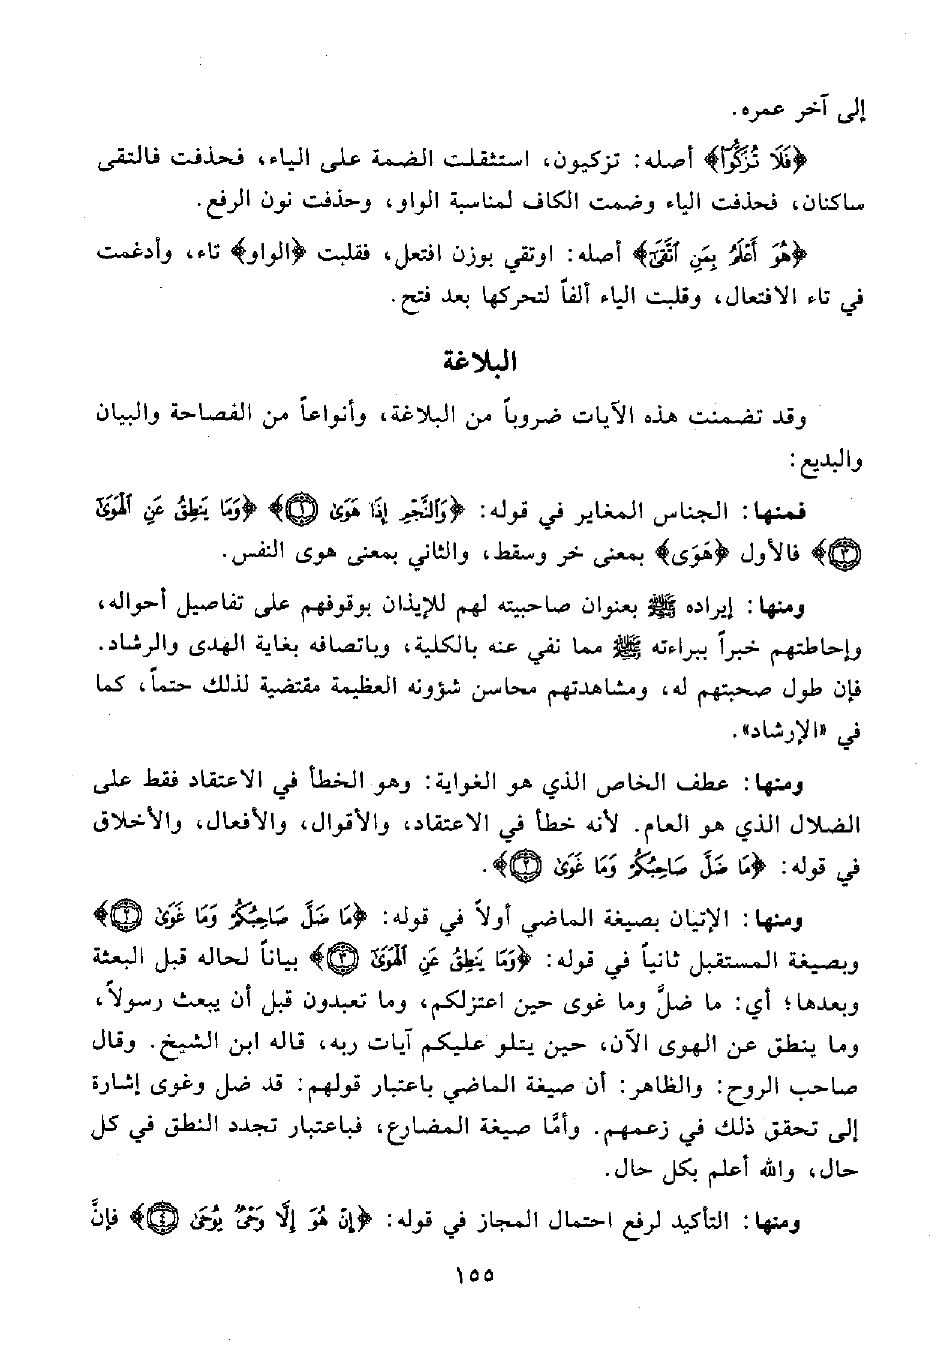 إلى آخر عمره.
﴿فَلَا تُزَكُّوٓا۟﴾ أصله: تزكيون، استثقلت الضمة على الياء، فحذفت فالتقى
ساكنان، فحذفت الياء وضمت الكاف لمناسبة الواو، وحذفت نون الرفع.
﴿هُوَ أَعْلَمُ بِمَنِ ٱتَّقَىٰٓ﴾ أصله: اوتقي بوزن افتعل، فقلبت ﴿الواو﴾ تاء، وأدغمت
في تاء الافتعال، وقلبت الياء ألفاً لتحركها بعد فتح.
البلاغة
وقد تضمنت هذه الآيات ضروباً من البلاغة، وأنواعاً من الفصاحة والبيان
والبديع:
فمنها: الجناس المغاير في قوله: ﴿وَٱلنَّجْمِ إِذَا هَوَىٰ ١﴾ ﴿وَمَا يَنطِقُ عَنِ ٱلْهَوَىٰٓ
٣﴾ فالأول ﴿هَوَى﴾ بمعنى خر وسقط، والثاني بمعنى هوى النفس.
ومنها: إيراده ﷺ بعنوان صاحبيته لهم للإيذان بوقوفهم على تفاصيل أحواله،
وإحاطتهم خبراً ببراءته ﷺ مما نفي عنه بالكلية، وباتصافه بغاية الهدى والرشاد.
فإن طول صحبتهم له، ومشاهدتهم محاسن شؤونه العظيمة مقتضية لذلك حتماً، كما
في «الإرشاد».
ومنها: عطف الخاص الذي هو الغواية: وهو الخطأ في الاعتقاد فقط على
الضلال الذي هو العام. لأنه خطأ في الاعتقاد، والأقوال، والأفعال، والأخلاق
في قوله: ﴿مَا ضَلَّ صَاحِبُكُمْ وَمَا غَوَىٰ ٢﴾.
ومنها: الإتيان بصيغة الماضي أولاً في قوله: ﴿مَا ضَلَّ صَاحِبُكُمْ وَمَا غَوَىٰ ٢﴾
وبصيغة المستقبل ثانياً في قوله: ﴿وَمَا يَنطِقُ عَنِ ٱلْهَوَىٰٓ ٣﴾ بياناً لحاله قبل البعثة
وبعدها؛ أي: ما ضلَّ وما غوى حين اعتزلكم، وما تعبدون قبل أن يبعث رسولاً،
وما ينطق عن الهوى الآن، حين يتلو عليكم آيات ربه، قاله ابن الشيخ. وقال
صاحب الروح: والظاهر: أن صيغة الماضي باعتبار قولهم: قد ضل وغوى إشارة
إلى تحقق ذلك في زعمهم. وأمَّا صيغة المضارع، فباعتبار تجدد النطق في كل
حال، والله أعلم بكل حال.
ومنها: التأكيد لرفع احتمال المجاز في قوله: ﴿إِنْ هُوَ إِلَّا وَحْىٌ يُوحَىٰ ٤﴾ فإنَّ
١٥٥